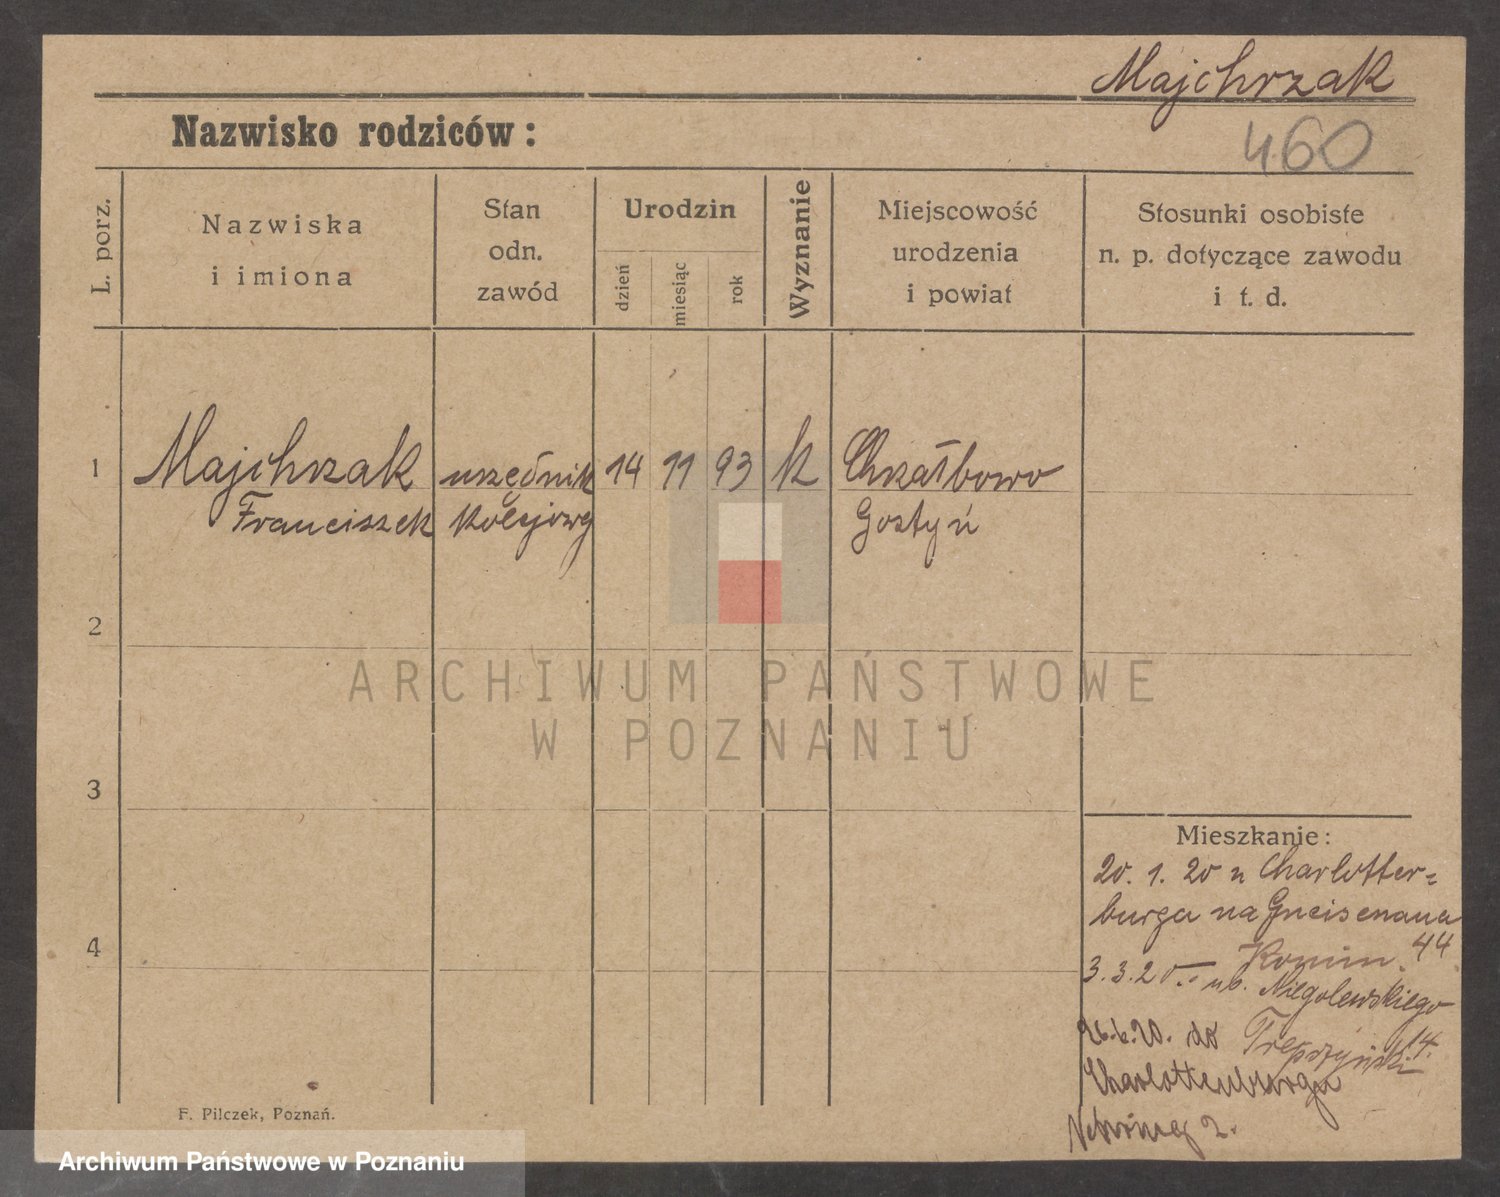 Majchrzak
Nazwisko rodziców:
460
L. porz.
Nazwiska
i imiona
Stan
odn.
zawód
Urodzin
dzień
miesiąc
rok
Wyznanie
Miejscowość
urodzenia
i powiat
Stosunki osobiste
n. p. dotyczące zawodu
i t. d.
1
Majchrzak
Franciszek
urzędnik
kolejowy
14 11 93
k
Chrałbowo
Gostyń
2
3
4
Mieszkanie:
20. 1. 20 z Charlotten-
burga na Gneisenaua
44
Komim.
3.3.20.- ul. Niegolewskiego
14.
26.6.20. do
Charlottenburga
2.
F. Pilczek, Poznań.
ARCHIWUM PAŃSTWOWE
W POZNANIU
Archiwum Państwowe w Poznaniu